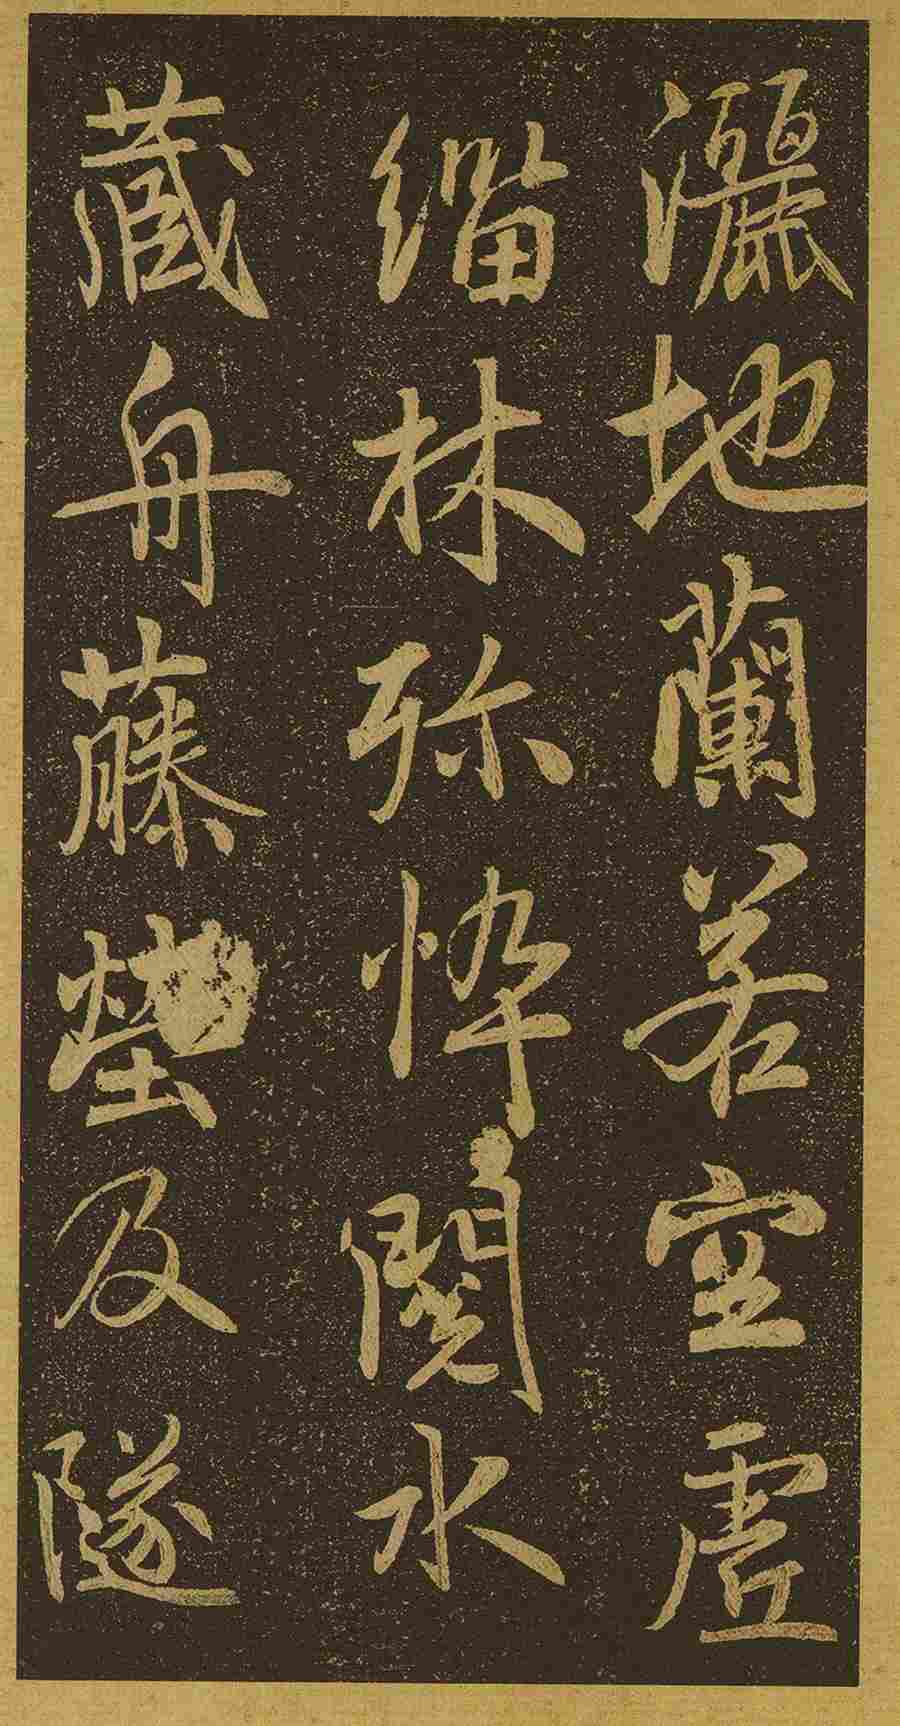 灑地蘭若空虛
緇林弥悴閱水
藏舟藤塋及隧